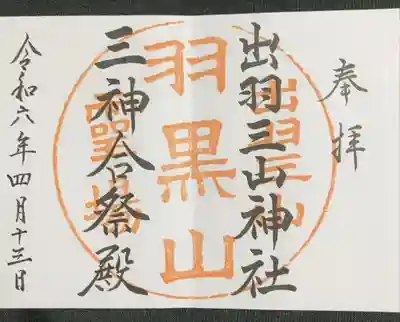 奉拝
出羽三山神社
羽黒山
三神合祭殿
令和六年四月十三日
出羽三山